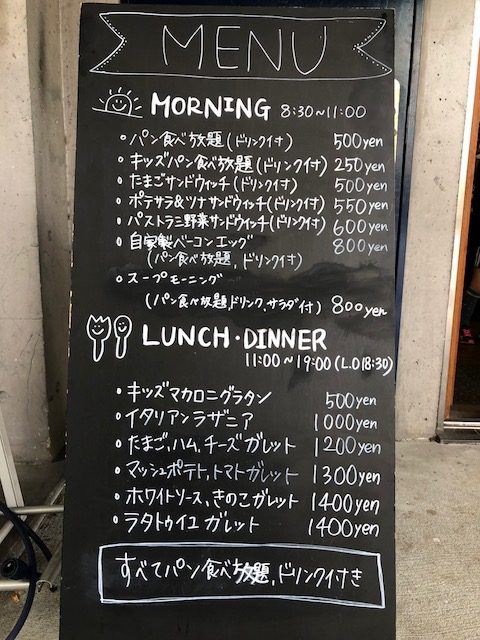 MENU
MORNING 8:30~11:00
・パン食べ放題(ドリンク付) 500yen
・キッズパン食べ放題(ドリンク付) 250yen
・たまごサンドウィッチ(ドリンク付) 500yen
・ポテサラ&ツナサンドウィッチ(ドリンク付) 550yen
・パストラミ野菜サンドウィッチ(ドリンク付) 600yen
・自家製ベーコンエッグ 800yen
(パン食べ放題,ドリンク付)
・スープモーニング
(パン食べ放題,ドリンク,サラダ付) 800yen
LUNCH・DINNER
11:00~19:00(L.O18:30)
・キッズマカロニグラタン 500yen
・イタリアンラザニア 1000yen
・たまご,ハム,チーズガレット 1200yen
・マッシュポテト,トマトガレット 1300yen
・ホワイトソース,きのこガレット 1400yen
・ラタトゥイユガレット 1400yen
すべてパン食べ放題,ドリンク付き